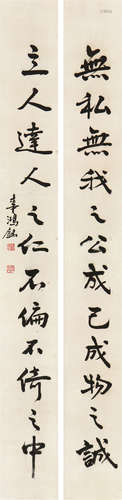 無私無我之公成己成物之誠
立人達人之仁不偏不倚之中
辜鴻銘